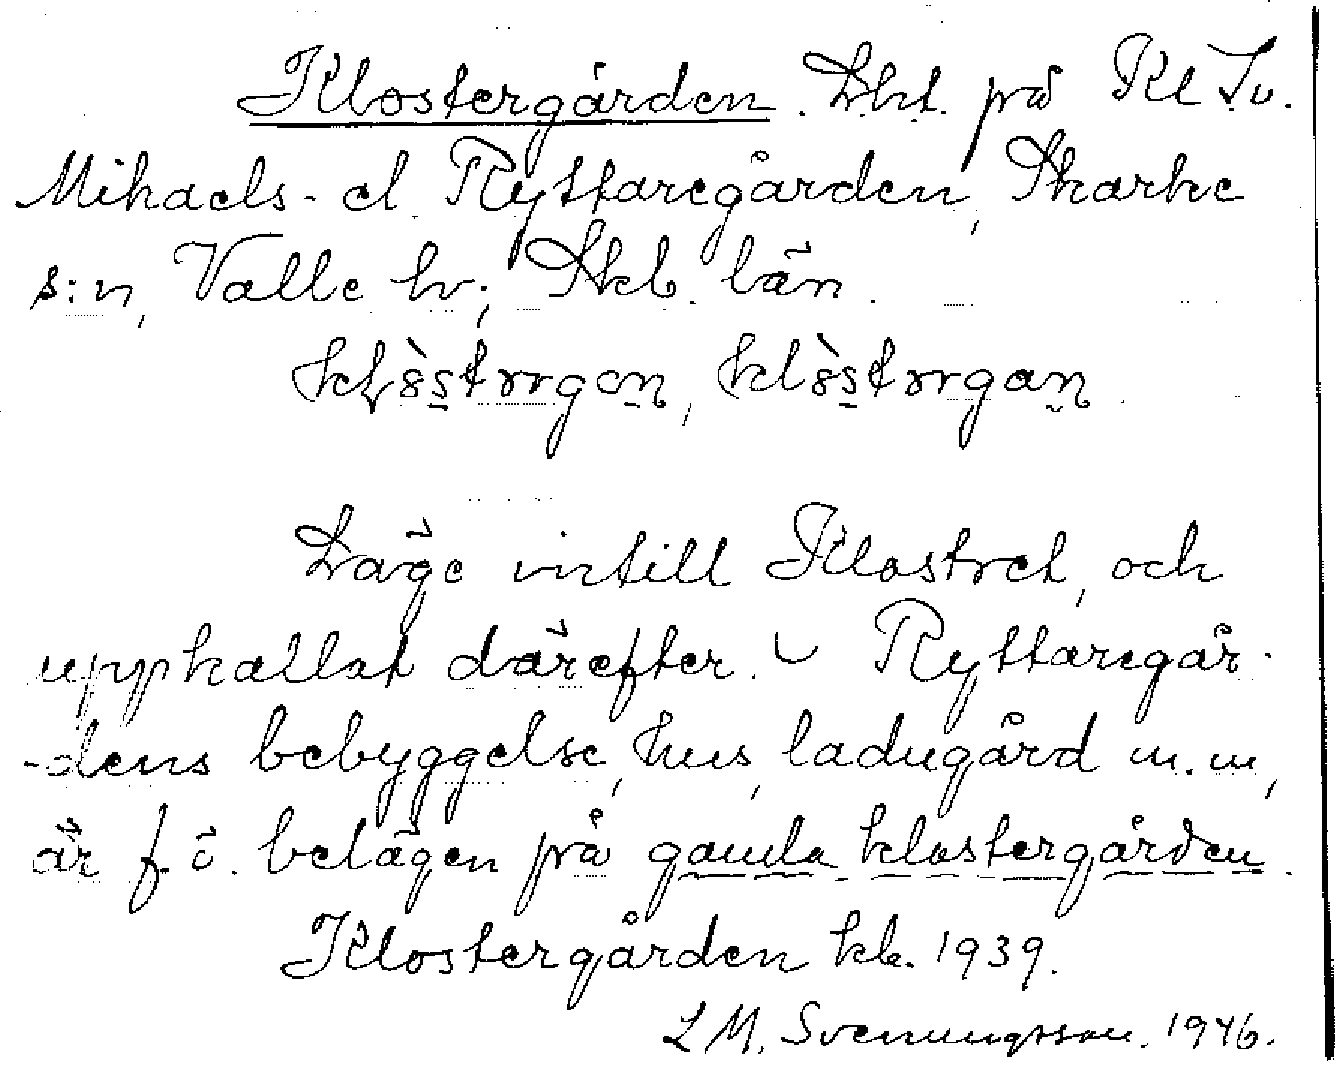 Klostergården. Lht. på Kl Sv.
Mikaels- el. Ryttaregården, Skarke
s:n, Valle hv; Skb. län.
Läge intill Klostret, och
uppkallat därefter. Ryttaregår-
-dens bebyggelse, hus, ladugård m.m,
är f. ö. belägen på gamla klostergården.
Klostergården kb. 1939.
L M. Svenungsson. 1946.